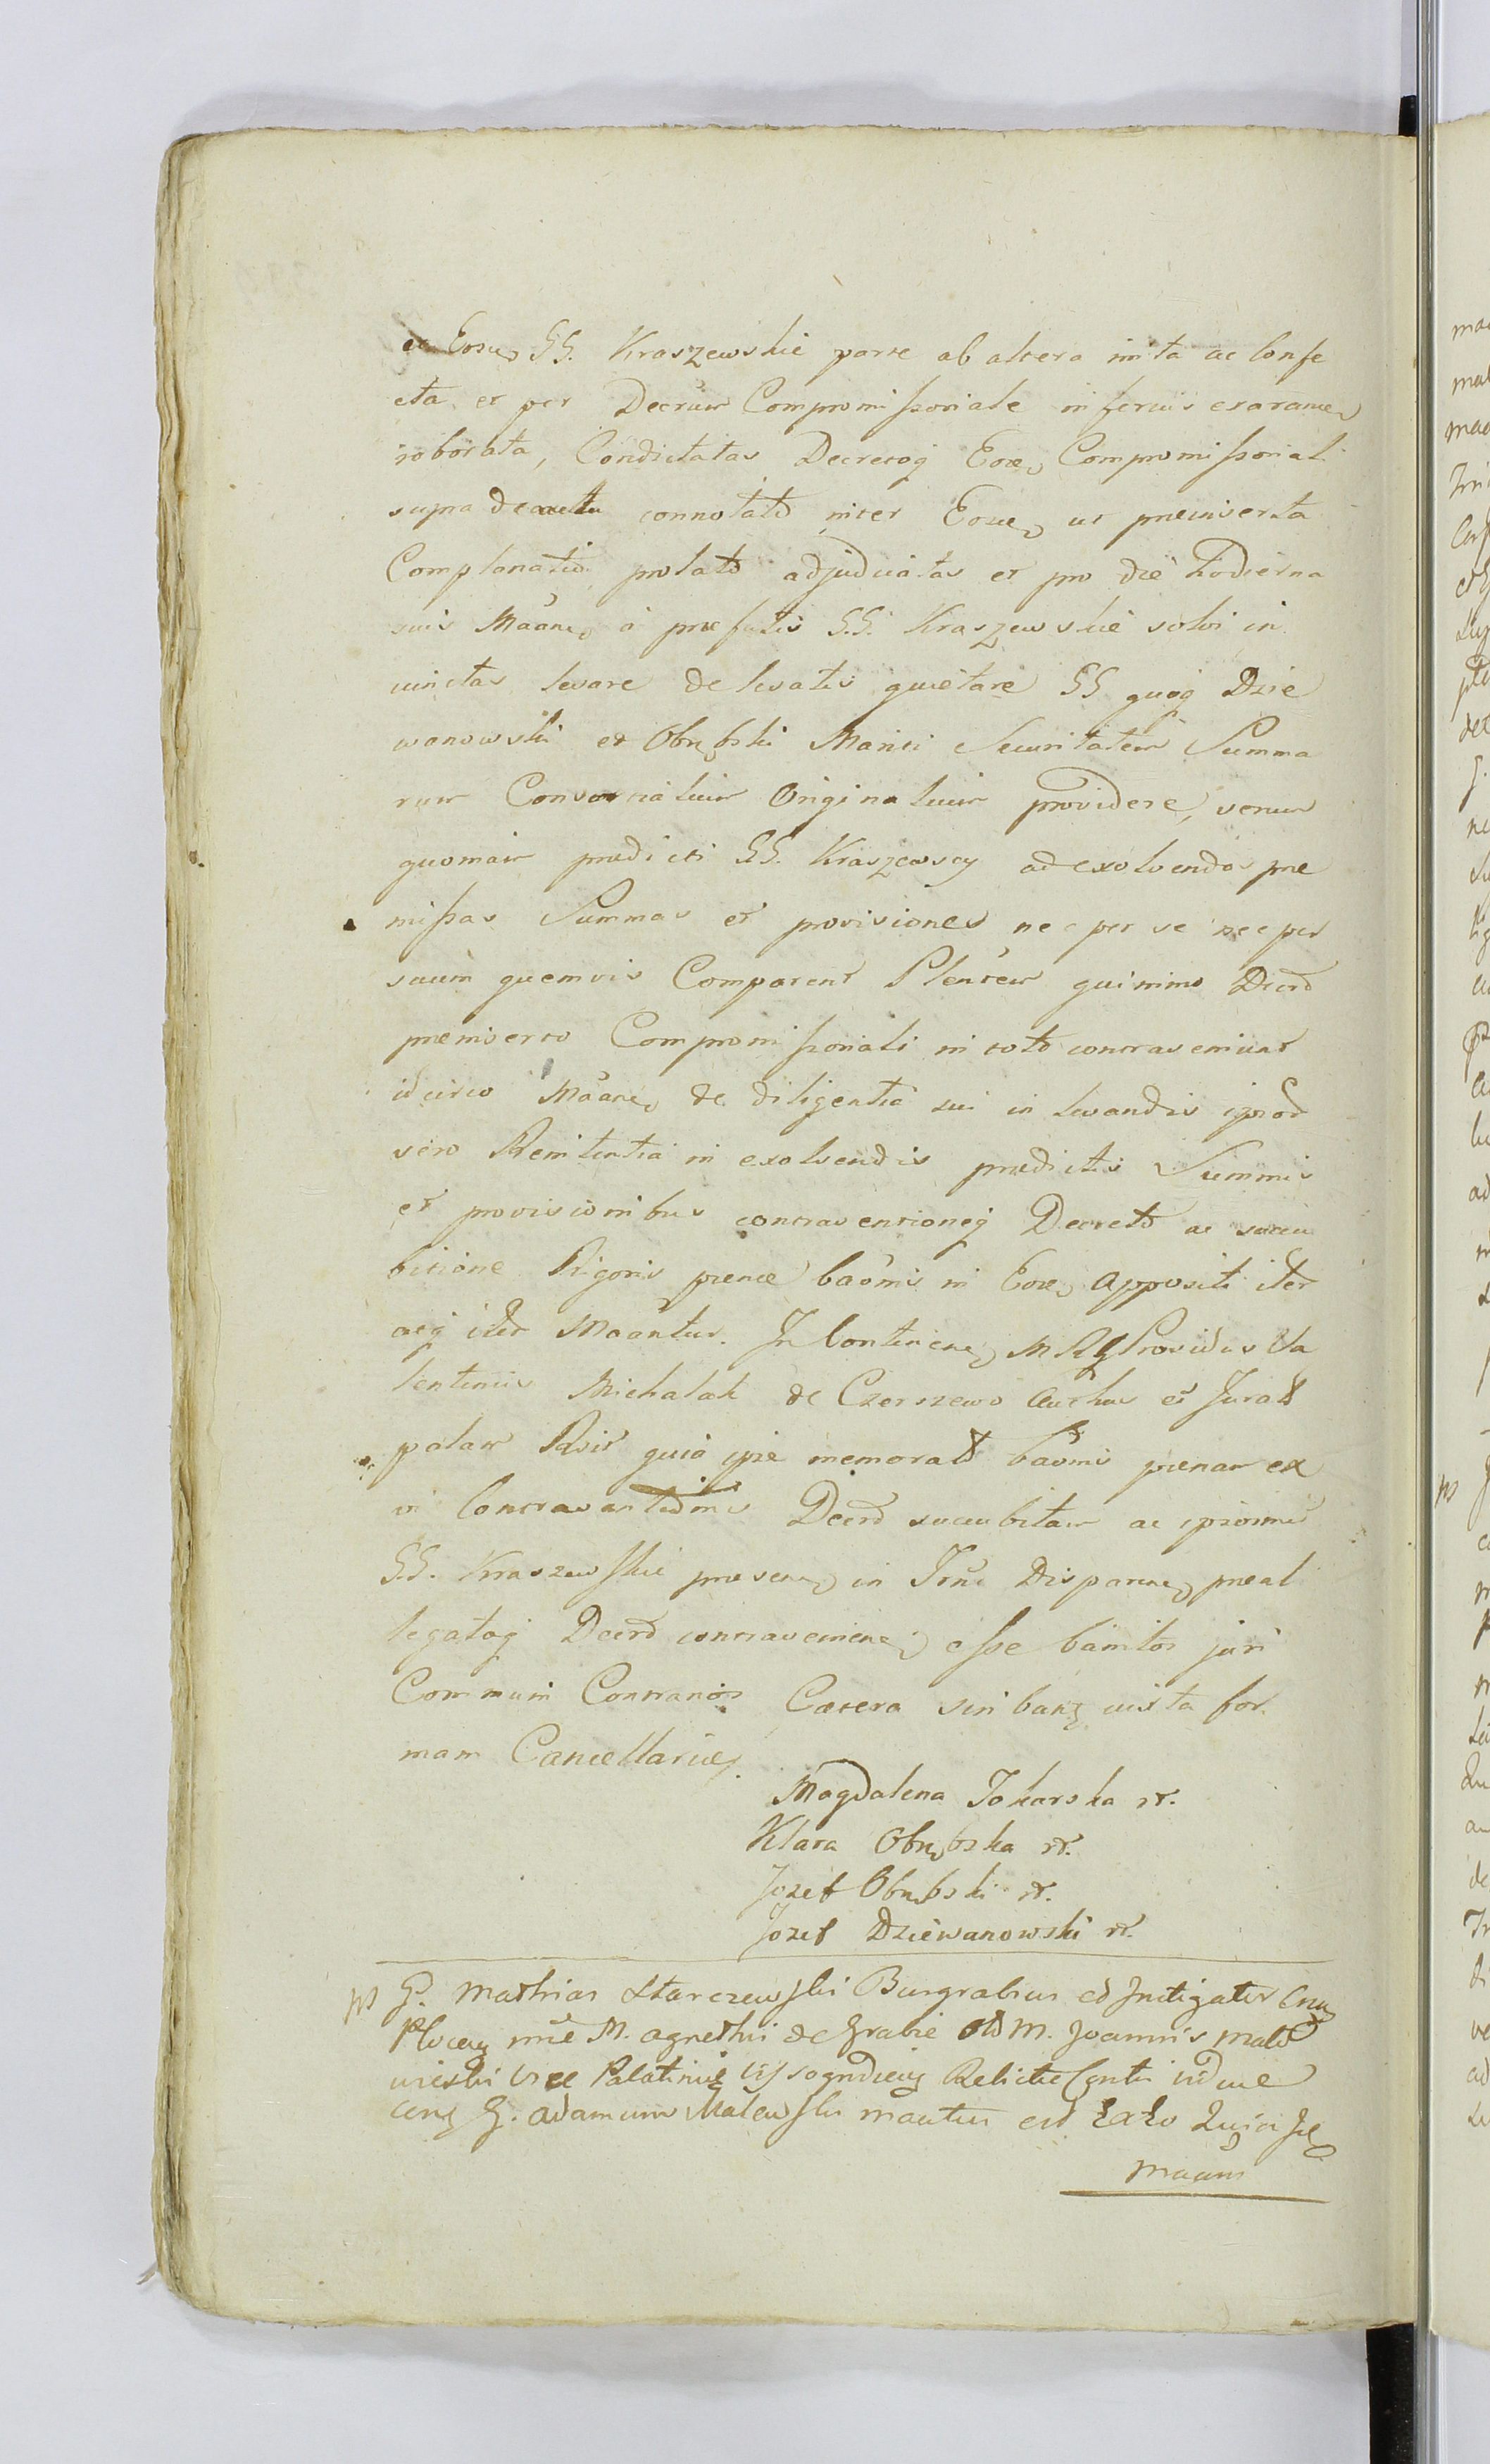 et Eosue GG. Kraszewskie parte ab altera inita ac confe
cta et per Decrum Compromissoriale inferius exarane
roborata, Condictatas Decretoq Eore Compromissoriali
supra de actu connotato inter Eosue ut preinserta
Complanatio prolato adjudicatas et pro die hodierna
suis Maane a præfatis G.G. Kraszewskie solvi in
iunctas levare de levatis quietare GG quoq Dzie
wanowski et Obrębski Mariti Securitatem Summa
rum Consortialium Originalium providere, verum
quoniam prædicti GG. Kraszewscy ad exolvendas præ
missas Summas et provisiones nec per se nec per
suum quemvis Comparent Plentem quinimo Decro
preinserto Compromissoriali in toto contraveniunt
idcirco Maane de diligentia sui in levandis ipsor
vero Renitentia in exolvendis prædictis Summis
et provisionibus contraventioneq Decreto ac succu
bitione Rigoris pænæ baõnis in Eore appositi iter
aeq iter Maantur. In Continene MRG Providus Va
lentinus Michalak de Czerszewo et Jurat
palam Rsit quia ipse memorat baõnis pænam ex
vi Contraventiõnis Decro succubitam ac ipsosmet
G.G. Kraszewskie presene in Trnõ Disparene preal
legatoq Decro contraveniene esse bãnitos juri
Communi Contrarios Cætera scribanz iuxta for
mam Cancellariæ.
Magdalena Tokarska
Klara Obrębska
Jozef Obrębski
Jozef Dziewanowski
ps G. Mathias Starczewski Burgrabius et Instigator
Plocen nñe M. Agnethis de Grabie M. Joannis Mało
wieski Vice Palatini Vissogrodien Relictæ
G. Adamum Malewski maatur
maam